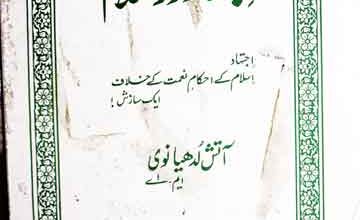 اجتہاد
اسلام کے احکامِ نعمت کے خلاف
ایک سازش !
آتش لُدھیانوی
ایم۔ اے